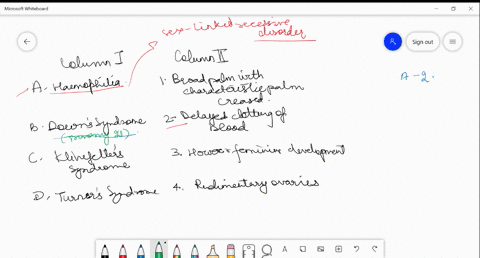 Microsoft Whiteboard
Sign out
sex-linked recessive
disorder
Column I
Column II
A. Haemophilia
1. Broad palm with
characteristic palm
creased.
A-2.
B. Down's Syndrome
2. Delayed clotting of
Blood
C. Klinefelter's
Syndrome
3. However feminine development
D. Turner's Syndrome
4. Rudimentary ovaries